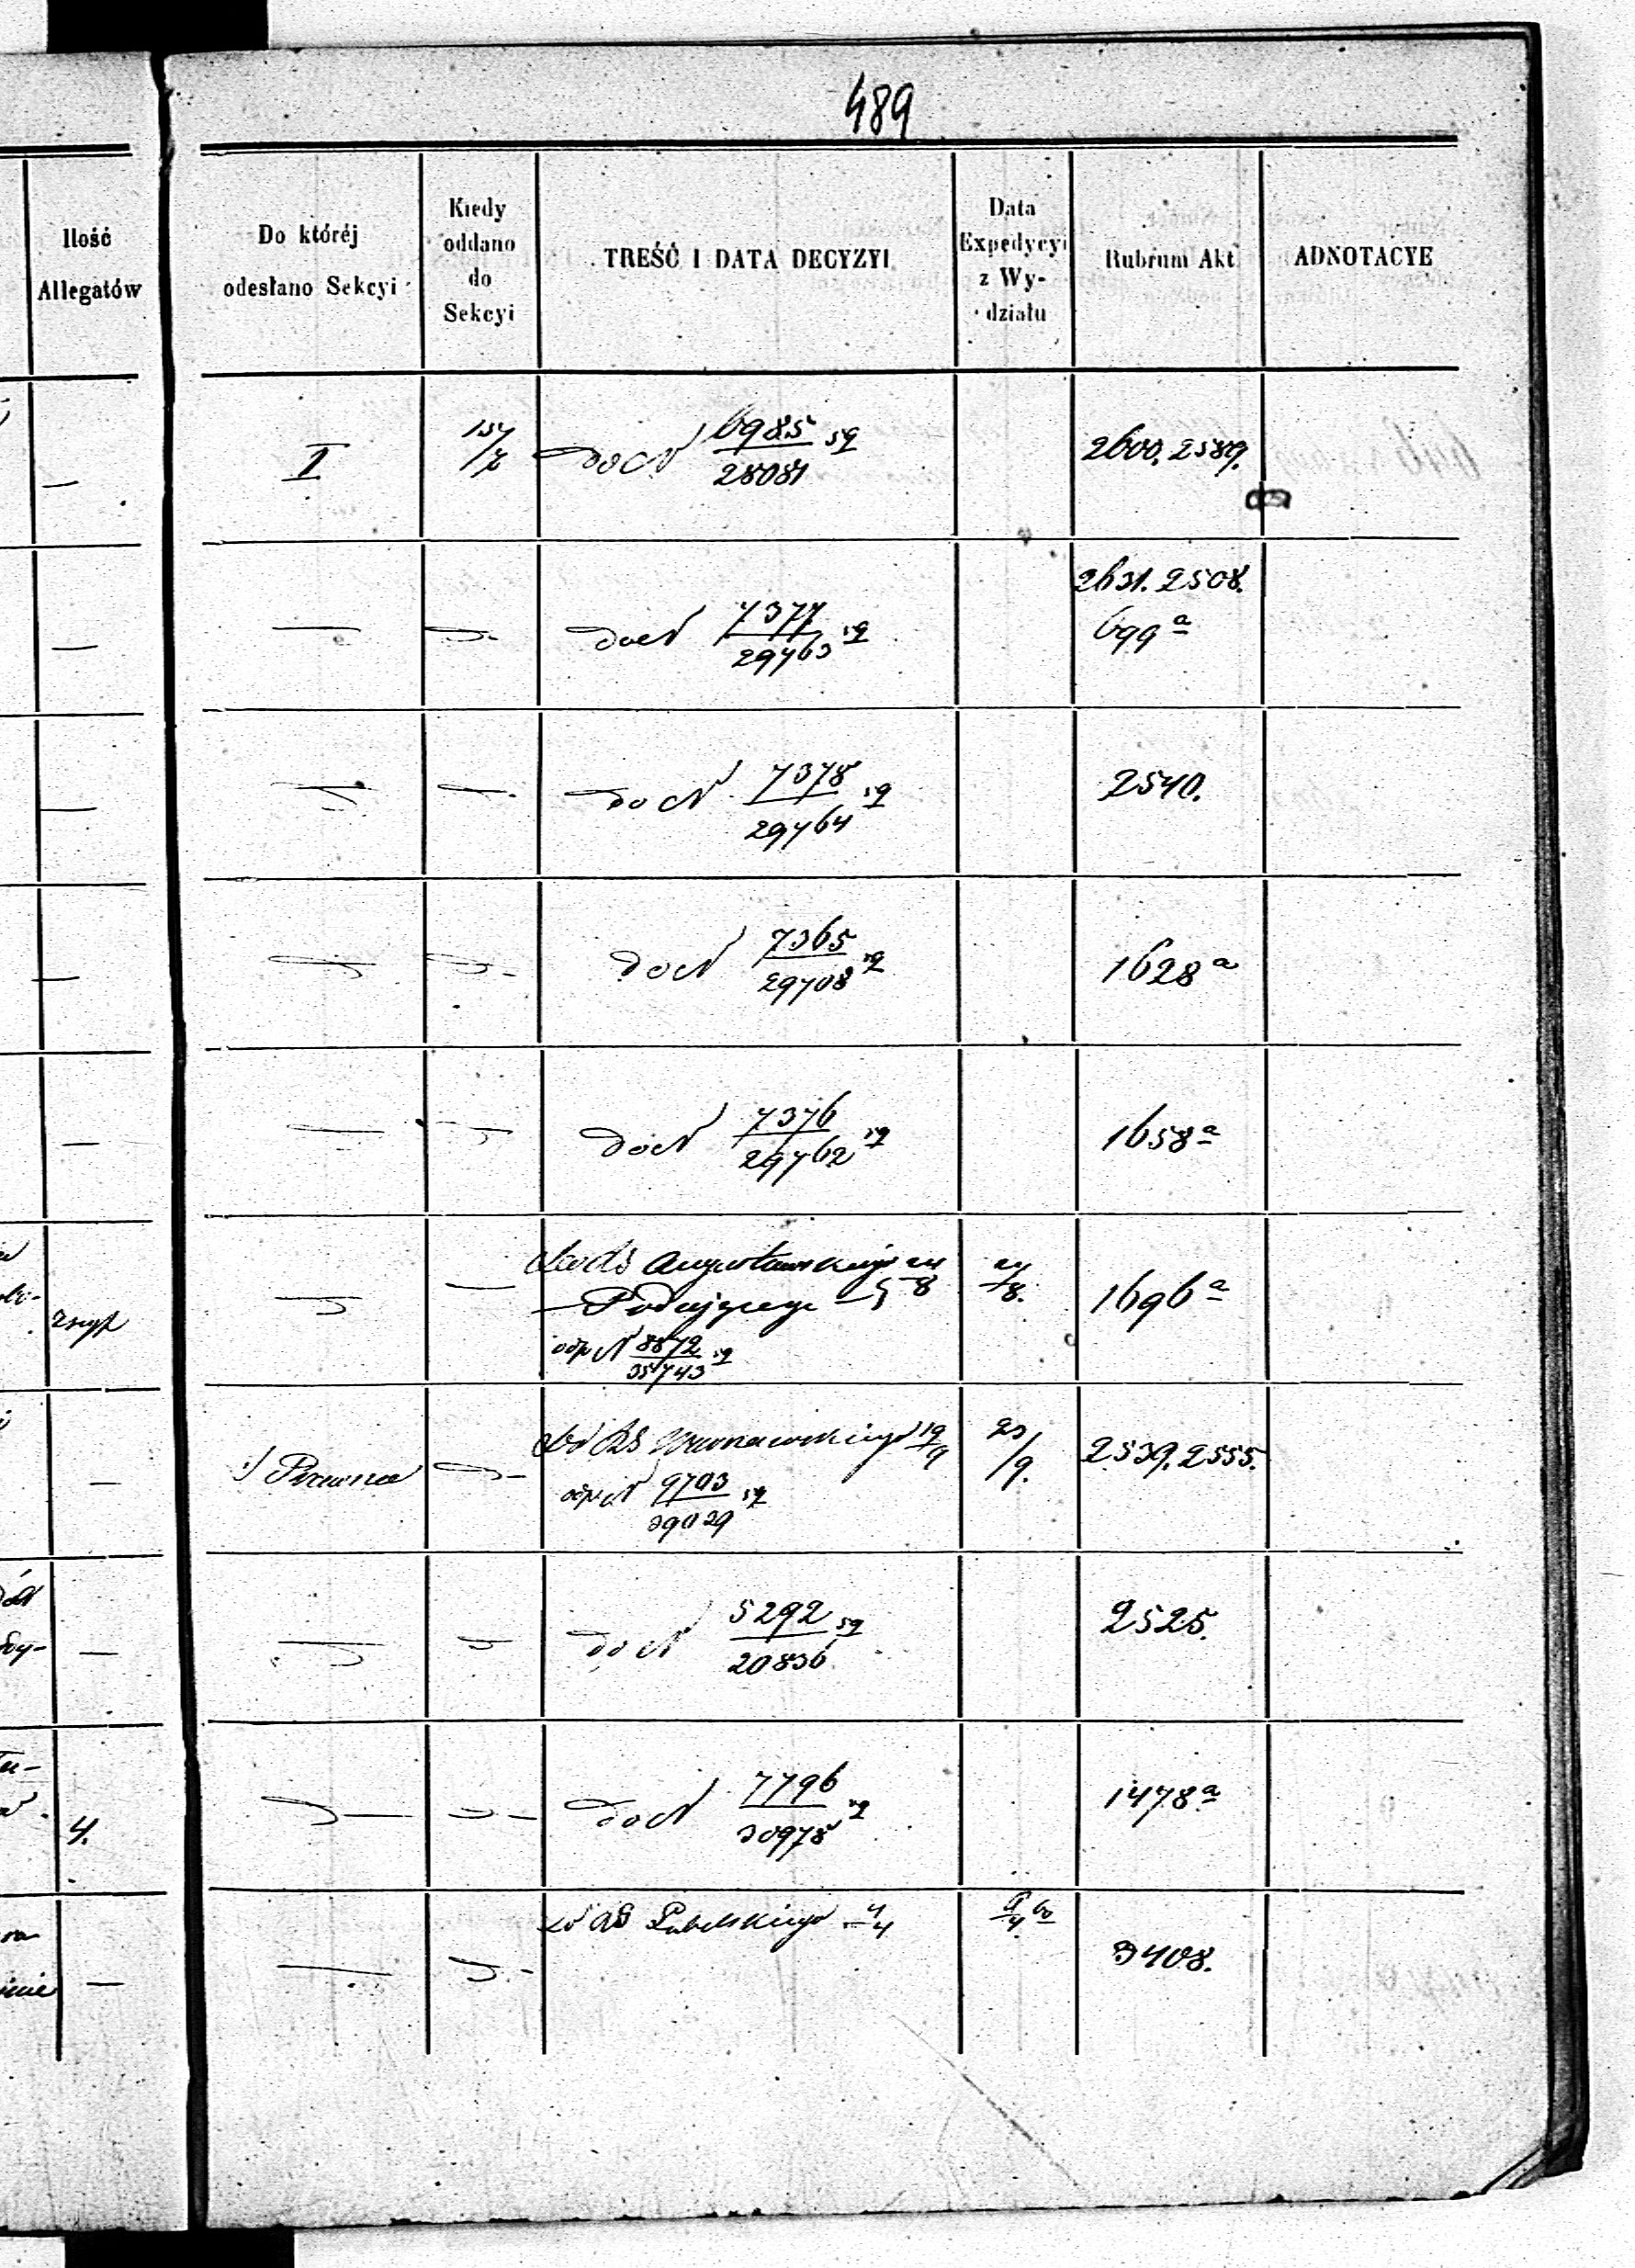 489
Ilość
Allegatów
Do któréj
odesłano Sekcyi
Kiedy
oddano
do
Sekcyi
TREŚĆ I DATA DECYZYI
Data
Expedycyi
z Wy-
działu
Rubrum Akt
ADNOTACYE
—
I
do N 6985/28081 59
2600. 2589.
—
do N 7377/29763 59
2631. 2508.
699 a
—
do N 7378/29764 59
2540.
—
do N 7365/29708 59
1628 a
—
do N 7376/29762 59
1658 a
Augustowskiego 24/8
24/8.
odp N 8872/35743 59
1696 a
—
Prawna
Do RG Warszawskiego 19/9
23/9.
odp N 9703/39029 59
2539. 2555.
—
do N 5292/20836 59
2525.
4.
do N 7796/30978 59
1478 a
—
Do RG Lubelskiego 4/4
60
3408.